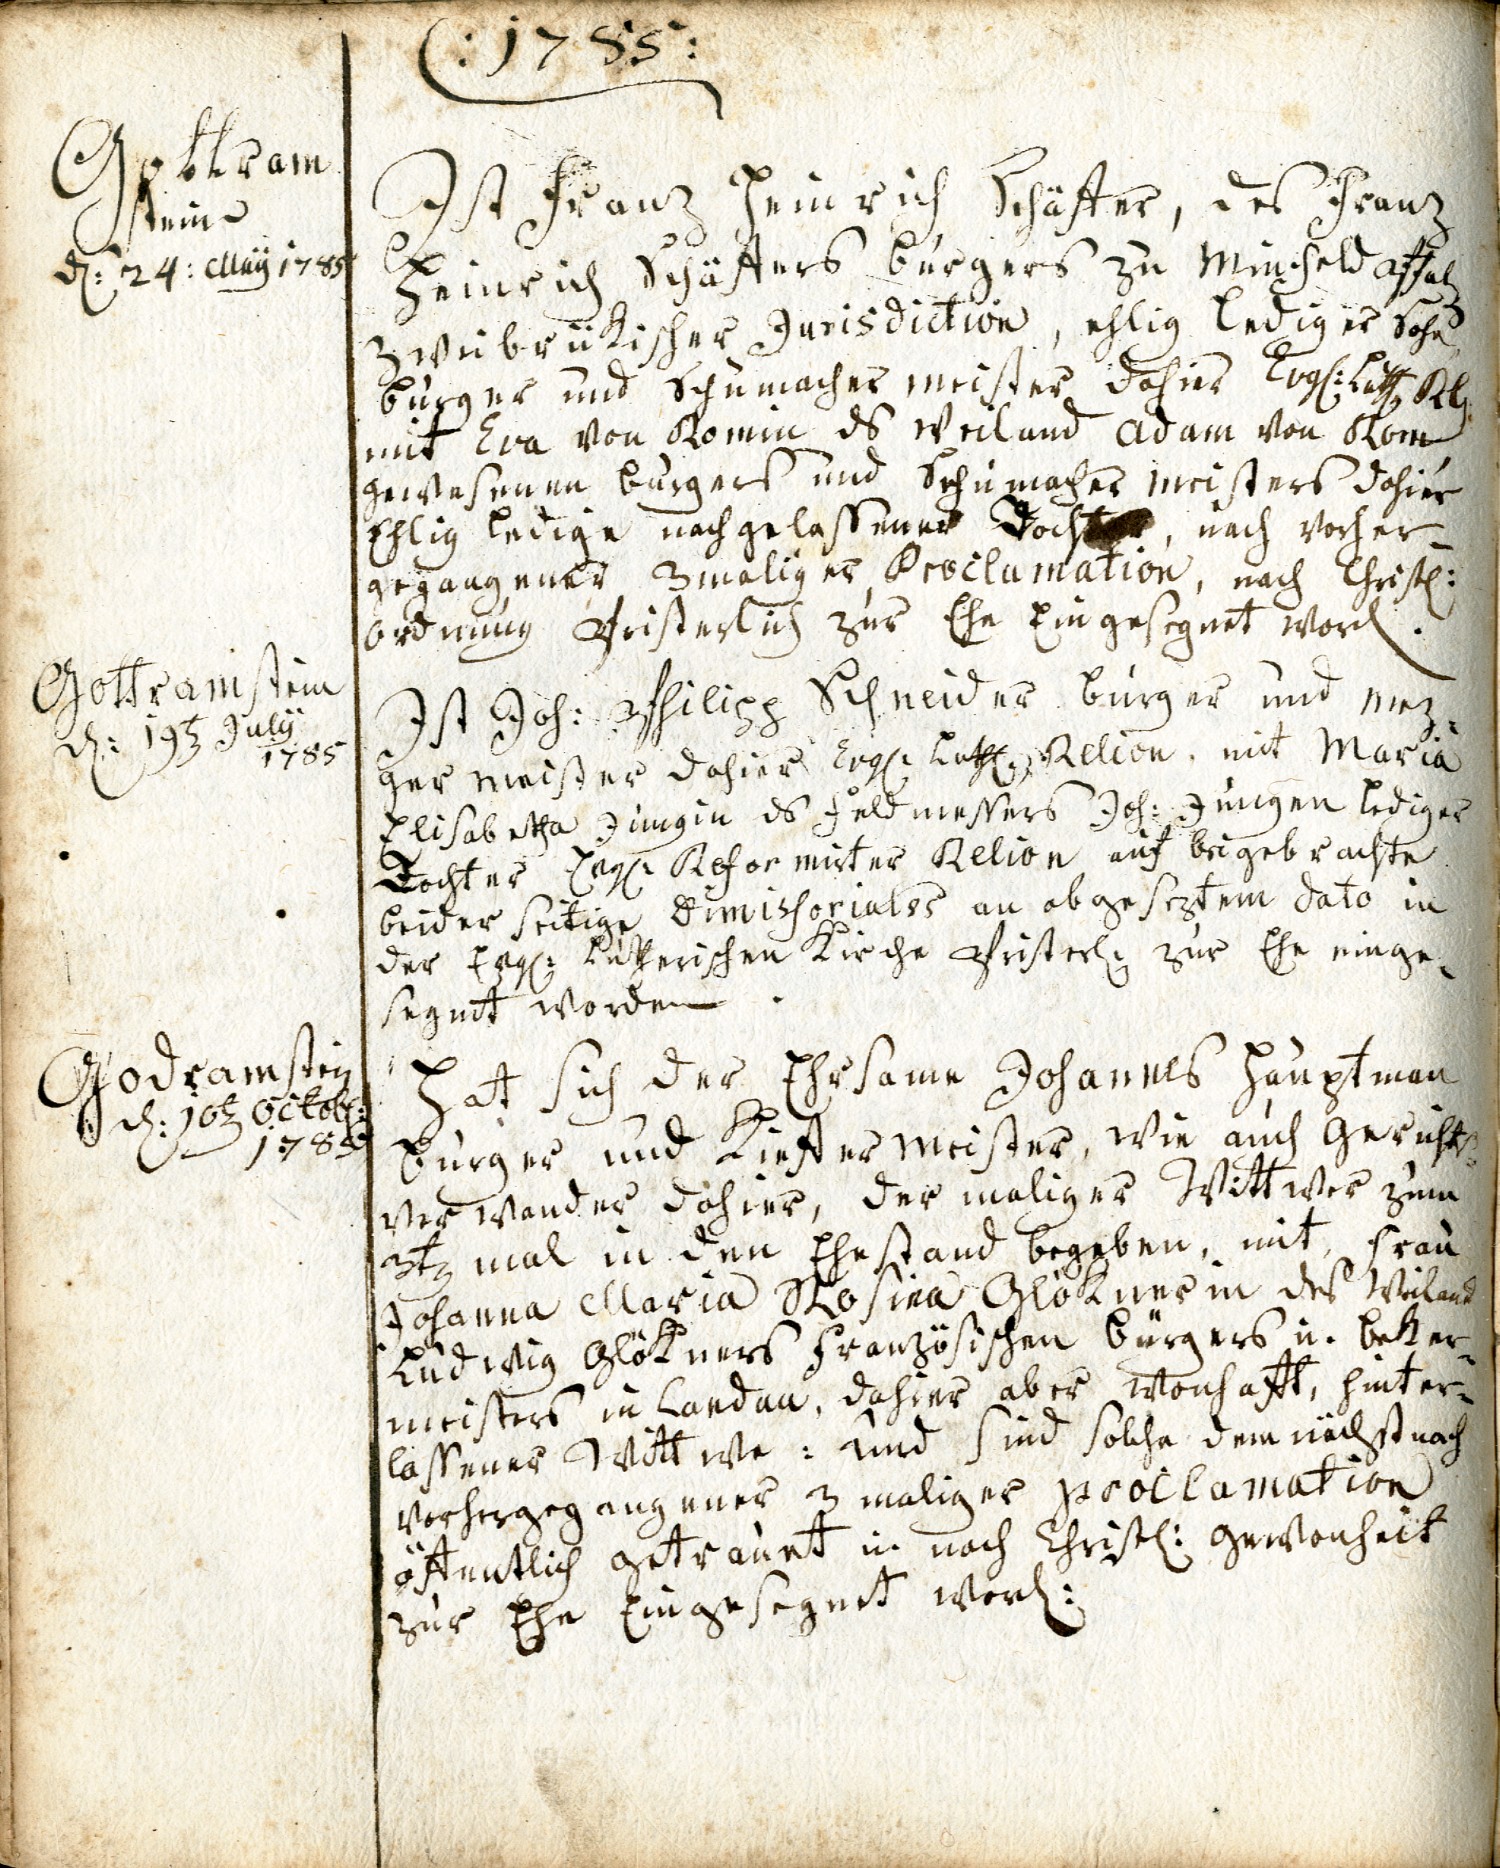 (: 1785 :
Gottram
stein
d: 24: Maÿ 1785
Ist Frantz Heinrich Schäffer, des Frantz
Heinrich Schäffers burgers zu Minfeld Pfaltz
zweibrükischer Jurisdiction, ehlig lediger Sohn
burger und Schumacher meister dahier Evgl: Luth: Rel:
mit Eva von Romin ds weiland Adam von Rom
gewesenen burgers und Schumacher meisters dahier
Ehlig ledige nachgelassener Tochter, nach vorher-
gegangener 3maliger Proclamation, nach Christl:
ordnung Pristerlich zur Ehe Eingesegnet word.
Gottramstein
d: 19t July
1785
Ist Joh: Philipp Schneider burger und mez-
ger meister dahier Evgl: Luth: Relion. mit Maria
Elisabetha Jungin ds Feldmessers Joh: Jungen lediger
Tochter Evgl: Reformirter Relion auf beigebrachte
beiderseitige Dimissoriales an abgeseztem dato in
der Evgl: Lutherischen Kirche Pristerl: zur Ehe einge-
segnet worden.
Godramstein
d: 10t Octobr:
1785
Hat sich der Ehrsame Johannes Hauptman
burger und Kieffer meister, wie auch Gerichts-
verwander dahier, der maliger Wittwer zum
3t mal in den Ehestand begeben, mit Frau
Johanna Maria Rosina Glöknerin des Weiland
Ludwig Glökners Französischen bürgers u. beker-
meisters in Landau, dahier aber wonhafft, hinter-
lassener Wittwe: und sind solche demnächst nach
vorhergegangener 3 maliger proclamation
öffentlich getrauet u. nach Christl: gewonheit
zur Ehe Eingesegnet word: